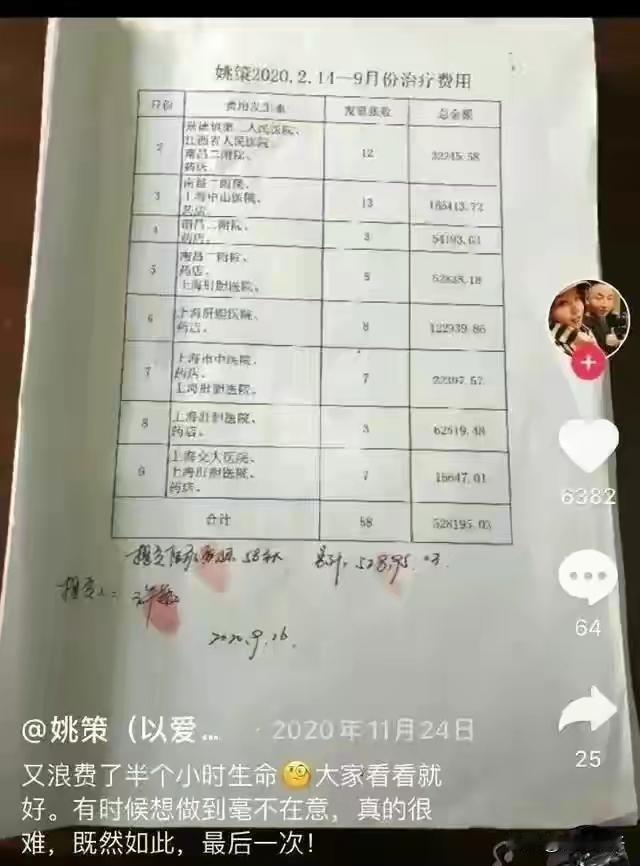 姚策2020.2.14—9月份治疗费用
月份 费用发生地 发票张数 总金额
2 景德镇第二人民医院、 12 32245.58
江西省人民医院、
南昌二附院、
药店。
3 南昌二附院、 13 165413.72
上海中山医院、
药店。
4 南昌二附院、 3 54193.63
药店。
5 南昌二附院、 5
药店。
上海肝胆医院、
6 上海肝胆医院、 8 122939.86
药店。
7 上海市中医院、 7 22397.57
药店。
上海肝胆医院、
8 上海肝胆医院、 3 62619.48
药店。
9 上海交大医院、 7 15647.01
上海肝胆医院、
药店。
合计 58 528195.03
累计: 528195.03.
提交人:
2020.9.26.
6382
64
25
@姚策（以爱... · 2020年11月24日
又浪费了半个小时生命🧐大家看看就
好。有时候想做到毫不在意，真的很
难，既然如此，最后一次！